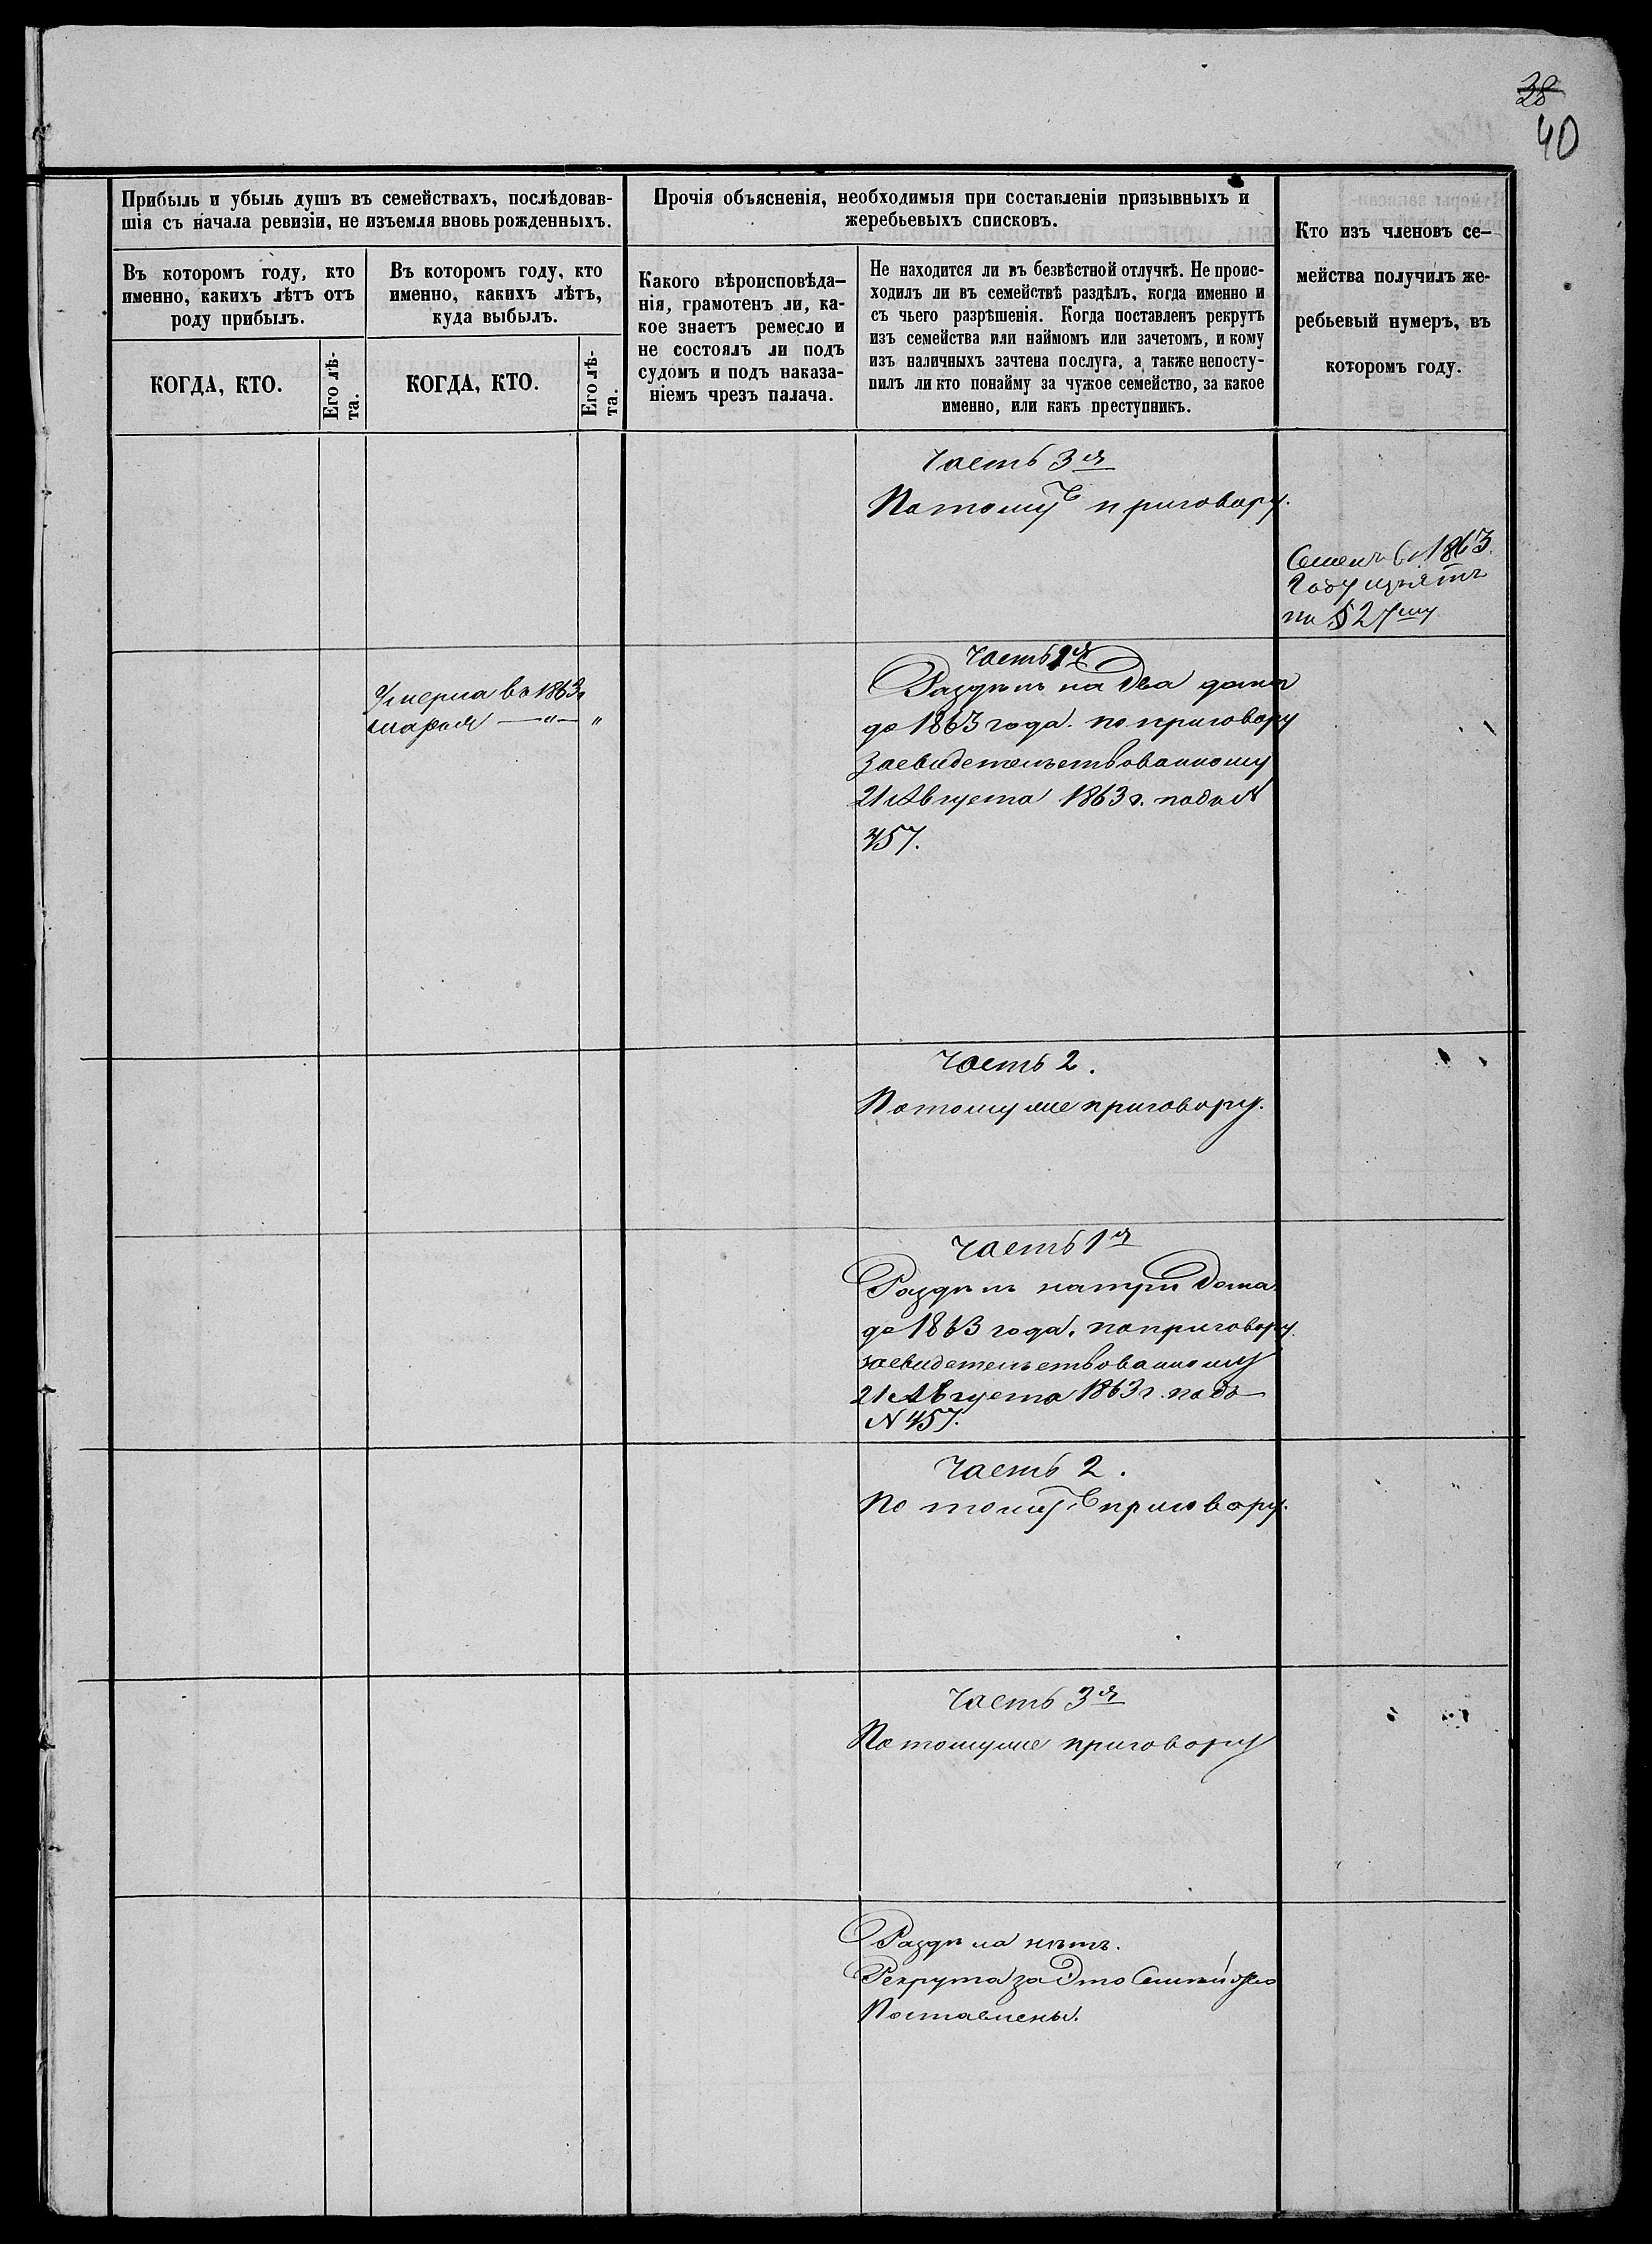 38
40
Прибыль и убыль душъ въ семействахъ, послѣдовав-
шія съ начала ревизіи, не изъемля вновь рожденныхъ.
Въ которомъ году, кто
именно, какихъ лѣтъ отъ
роду прибылъ.
КОГДА, КТО.
Его лѣ-
та.
Въ которомъ году, кто
именно, какихъ лѣтъ,
куда выбылъ.
КОГДА, КТО.
Его лѣ-
та.
Прочія объясненія, необходимыя при составленіи призывныхъ и
жеребьевыхъ списковъ.
Какого вѣроисповѣда-
нія, грамотенъ ли, ка-
кое знаетъ ремесло и
не состоялъ ли подъ
судомъ и подъ наказа-
ніемъ чрезъ палача.
Не находится ли въ безвѣстной отлучкѣ. Не проис-
ходилъ ли въ семействѣ раздѣлъ, когда именно и
съ чьего разрѣшенія. Когда поставленъ рекрутъ
изъ семейства или наймомъ или зачетомъ, и кому
изъ наличныхъ зачтена послуга, а также непосту-
пилъ ли кто понайму за чужое семейство, за какое
именно, или какъ преступникъ.
Кто изъ членовъ се-
мейства получилъ же-
ребьевый нумеръ, въ
которомъ году.
Часть 3я
Потому приговору.
Семенъ въ 1863
году изъятъ
по § 27му
Часть 1я
Раздѣлъ на два дома
до 1863 года. по приговору
Засвидетельствованному
21 Августа 1863 г. подъ №
457.
Умерла въ 1863 г
Марья —"— "
Часть 2.
Потомуже приговору.
Часть 1я
Раздѣлъ натри дома
до 1863 года. по приговору
засвидетельствованному
21 Августа 1863 г. подъ
№ 457.
Часть 2.
По тому приговору.
Часть 3я
По томуже приговору
Раздѣла нѣтъ.
Рекрута за это Семейство
Поставлены.